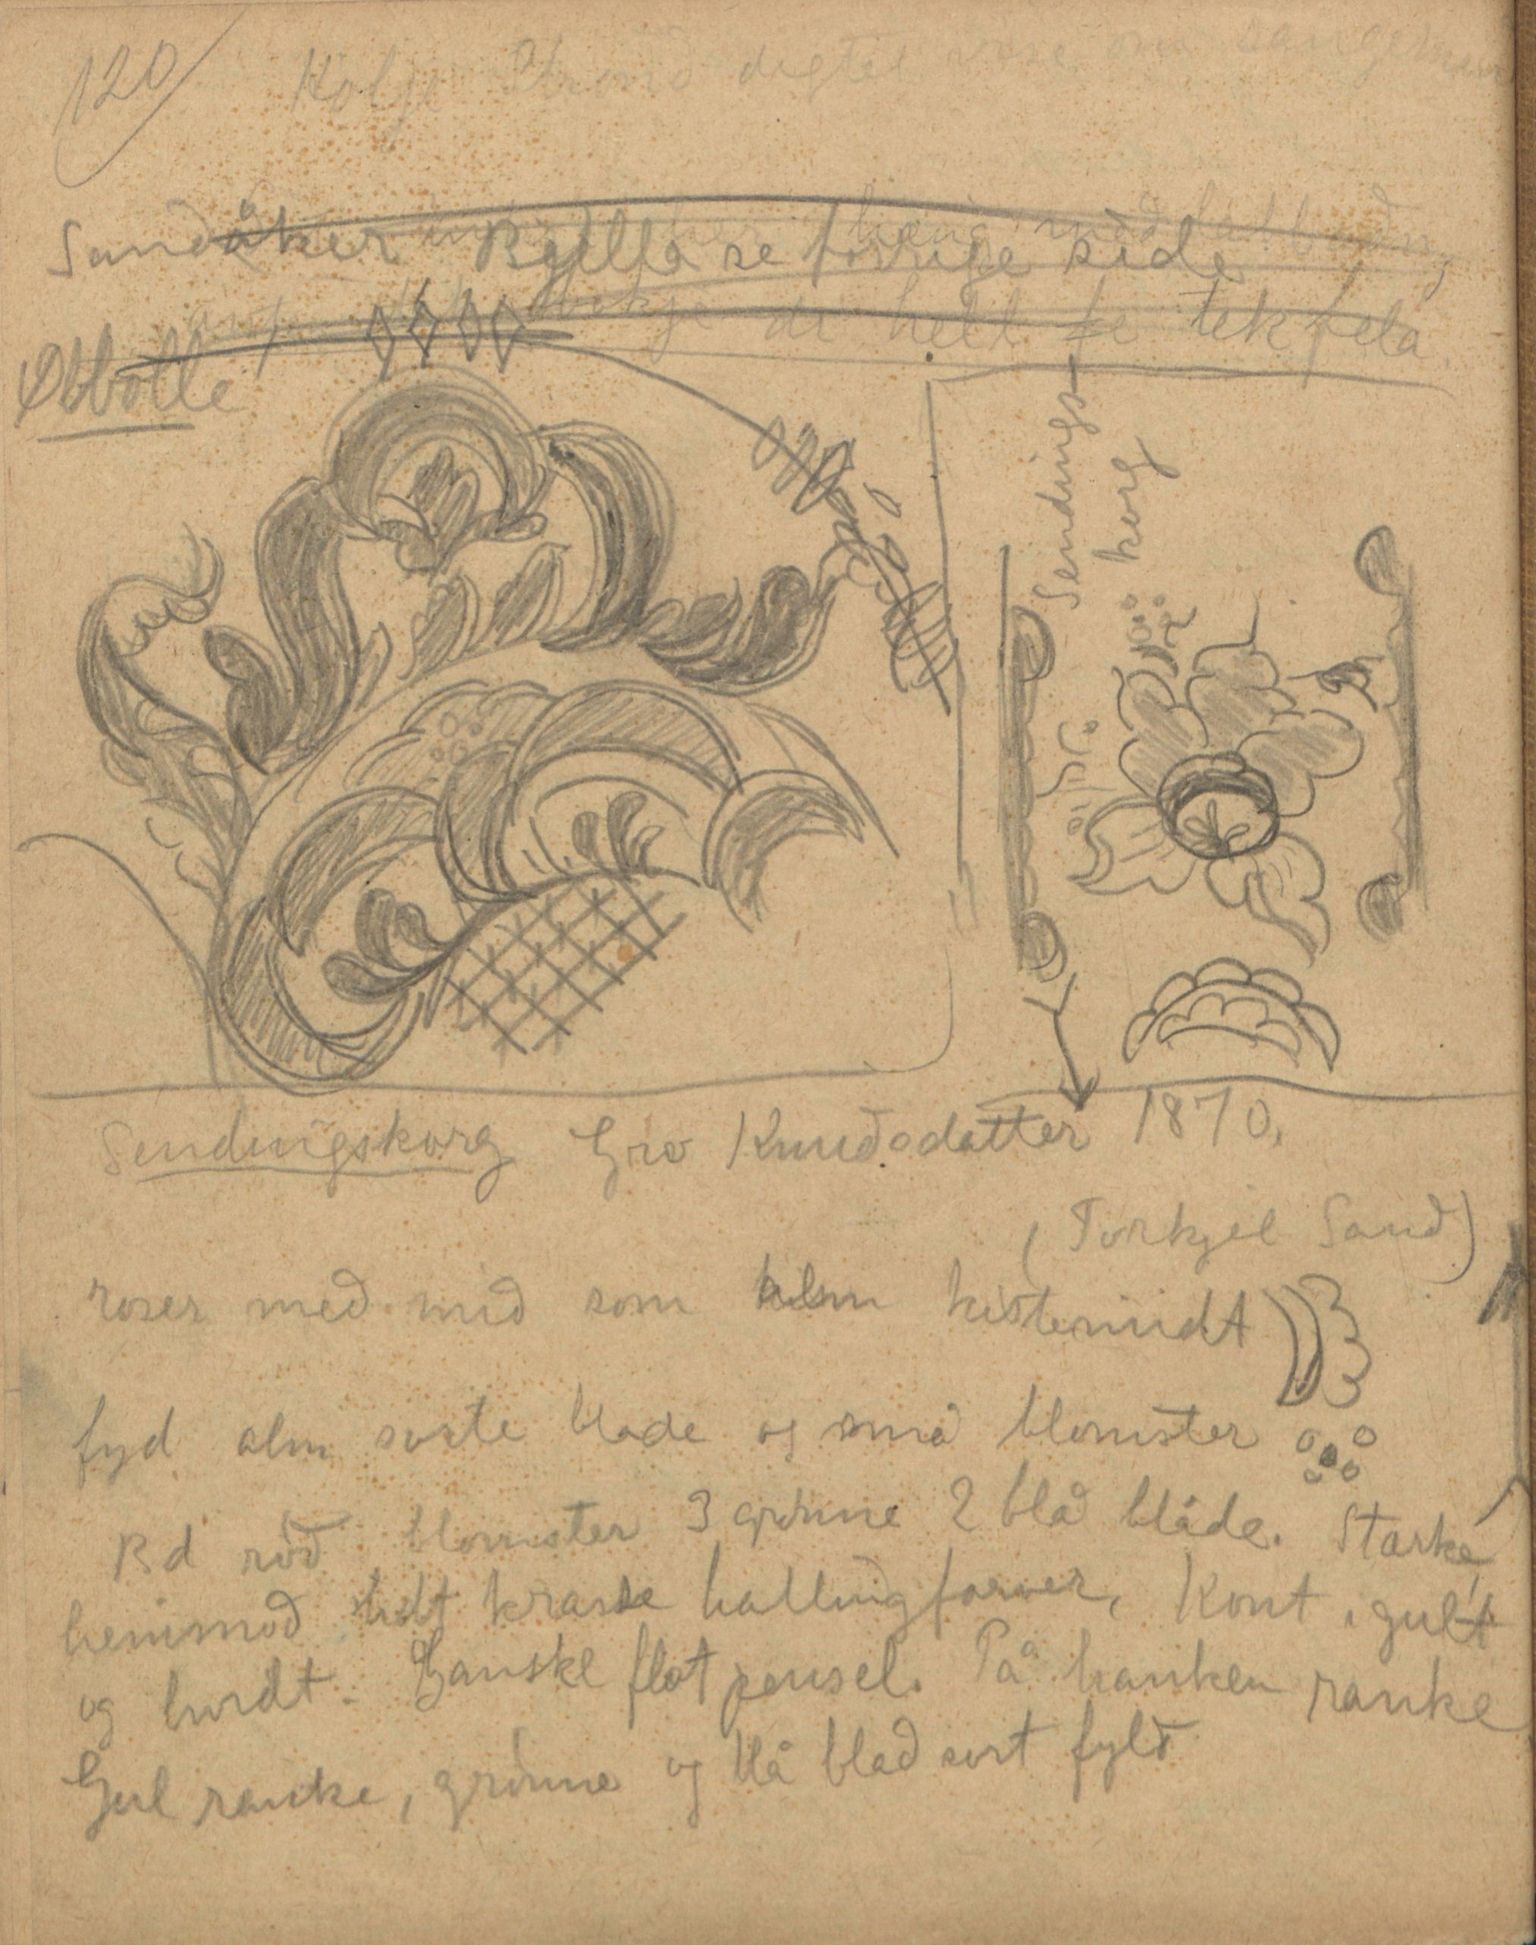 120
digtet vise om
Sandåker Bjella se forrige side
di hell
Ølbolle
Sendings-
korg
Sendingskorg Gro Knudsdatter 1870.
(Torkjel Sand)
roser med mid som kistemidt
fyd alm sorte blade og små blomster
Rd röd blomster 3 grönne 2 blå blåde. Stærke,
henimod lidt krasse hallingfarver, Kont. gult
og hvidt. Ganske flot pensel. På hanken ranke
Gul ranke, grönne og blå blad sort fyld